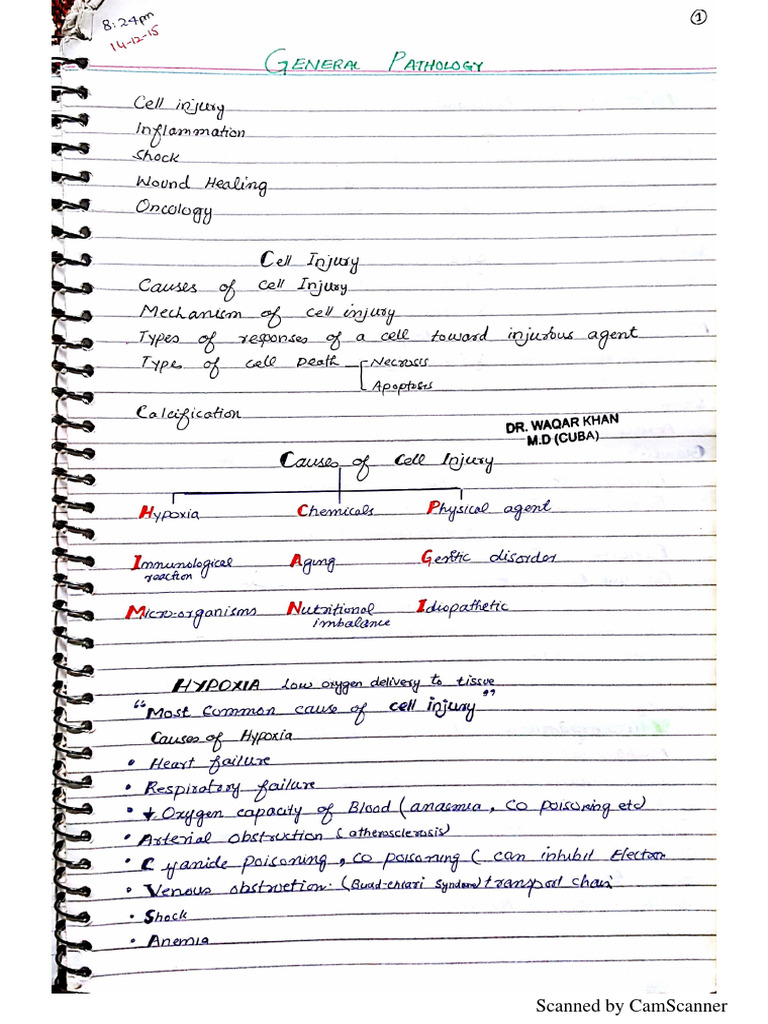 8:24pm
14-12-15
1
GENERAL PATHOLOGY
Cell injury
Inflammation
Shock
Wound Healing
Oncology
Cell Injury
Causes of cell Injury
Mechanism of cell injury
Types of responses of a cell toward injurious agent
Type of cell Death Necrosis
Apoptosis
Calcification
DR. WAQAR KHAN
M.D (CUBA)
Causes of Cell Injury
Hypoxia Chemicals Physical agent
Immunological reaction Aging Genetic disorder
Micro-organisms Nutritional imbalance Idiopathetic
HYPOXIA Low oxygen delivery to tissue
"Most Common cause of cell injury"
Causes of Hypoxia
• Heart failure
• Respiratory failure
• ↓ Oxygen capacity of Blood (anaemia, CO poisoning etc)
• Arterial obstruction (atherosclerosis)
• Cyanide poisoning, CO poisoning ( can inhibit Electron
• Venous obstruction. (Buad-chiari Syndrome) transport chain
• Shock
• Anemia
Scanned by CamScanner